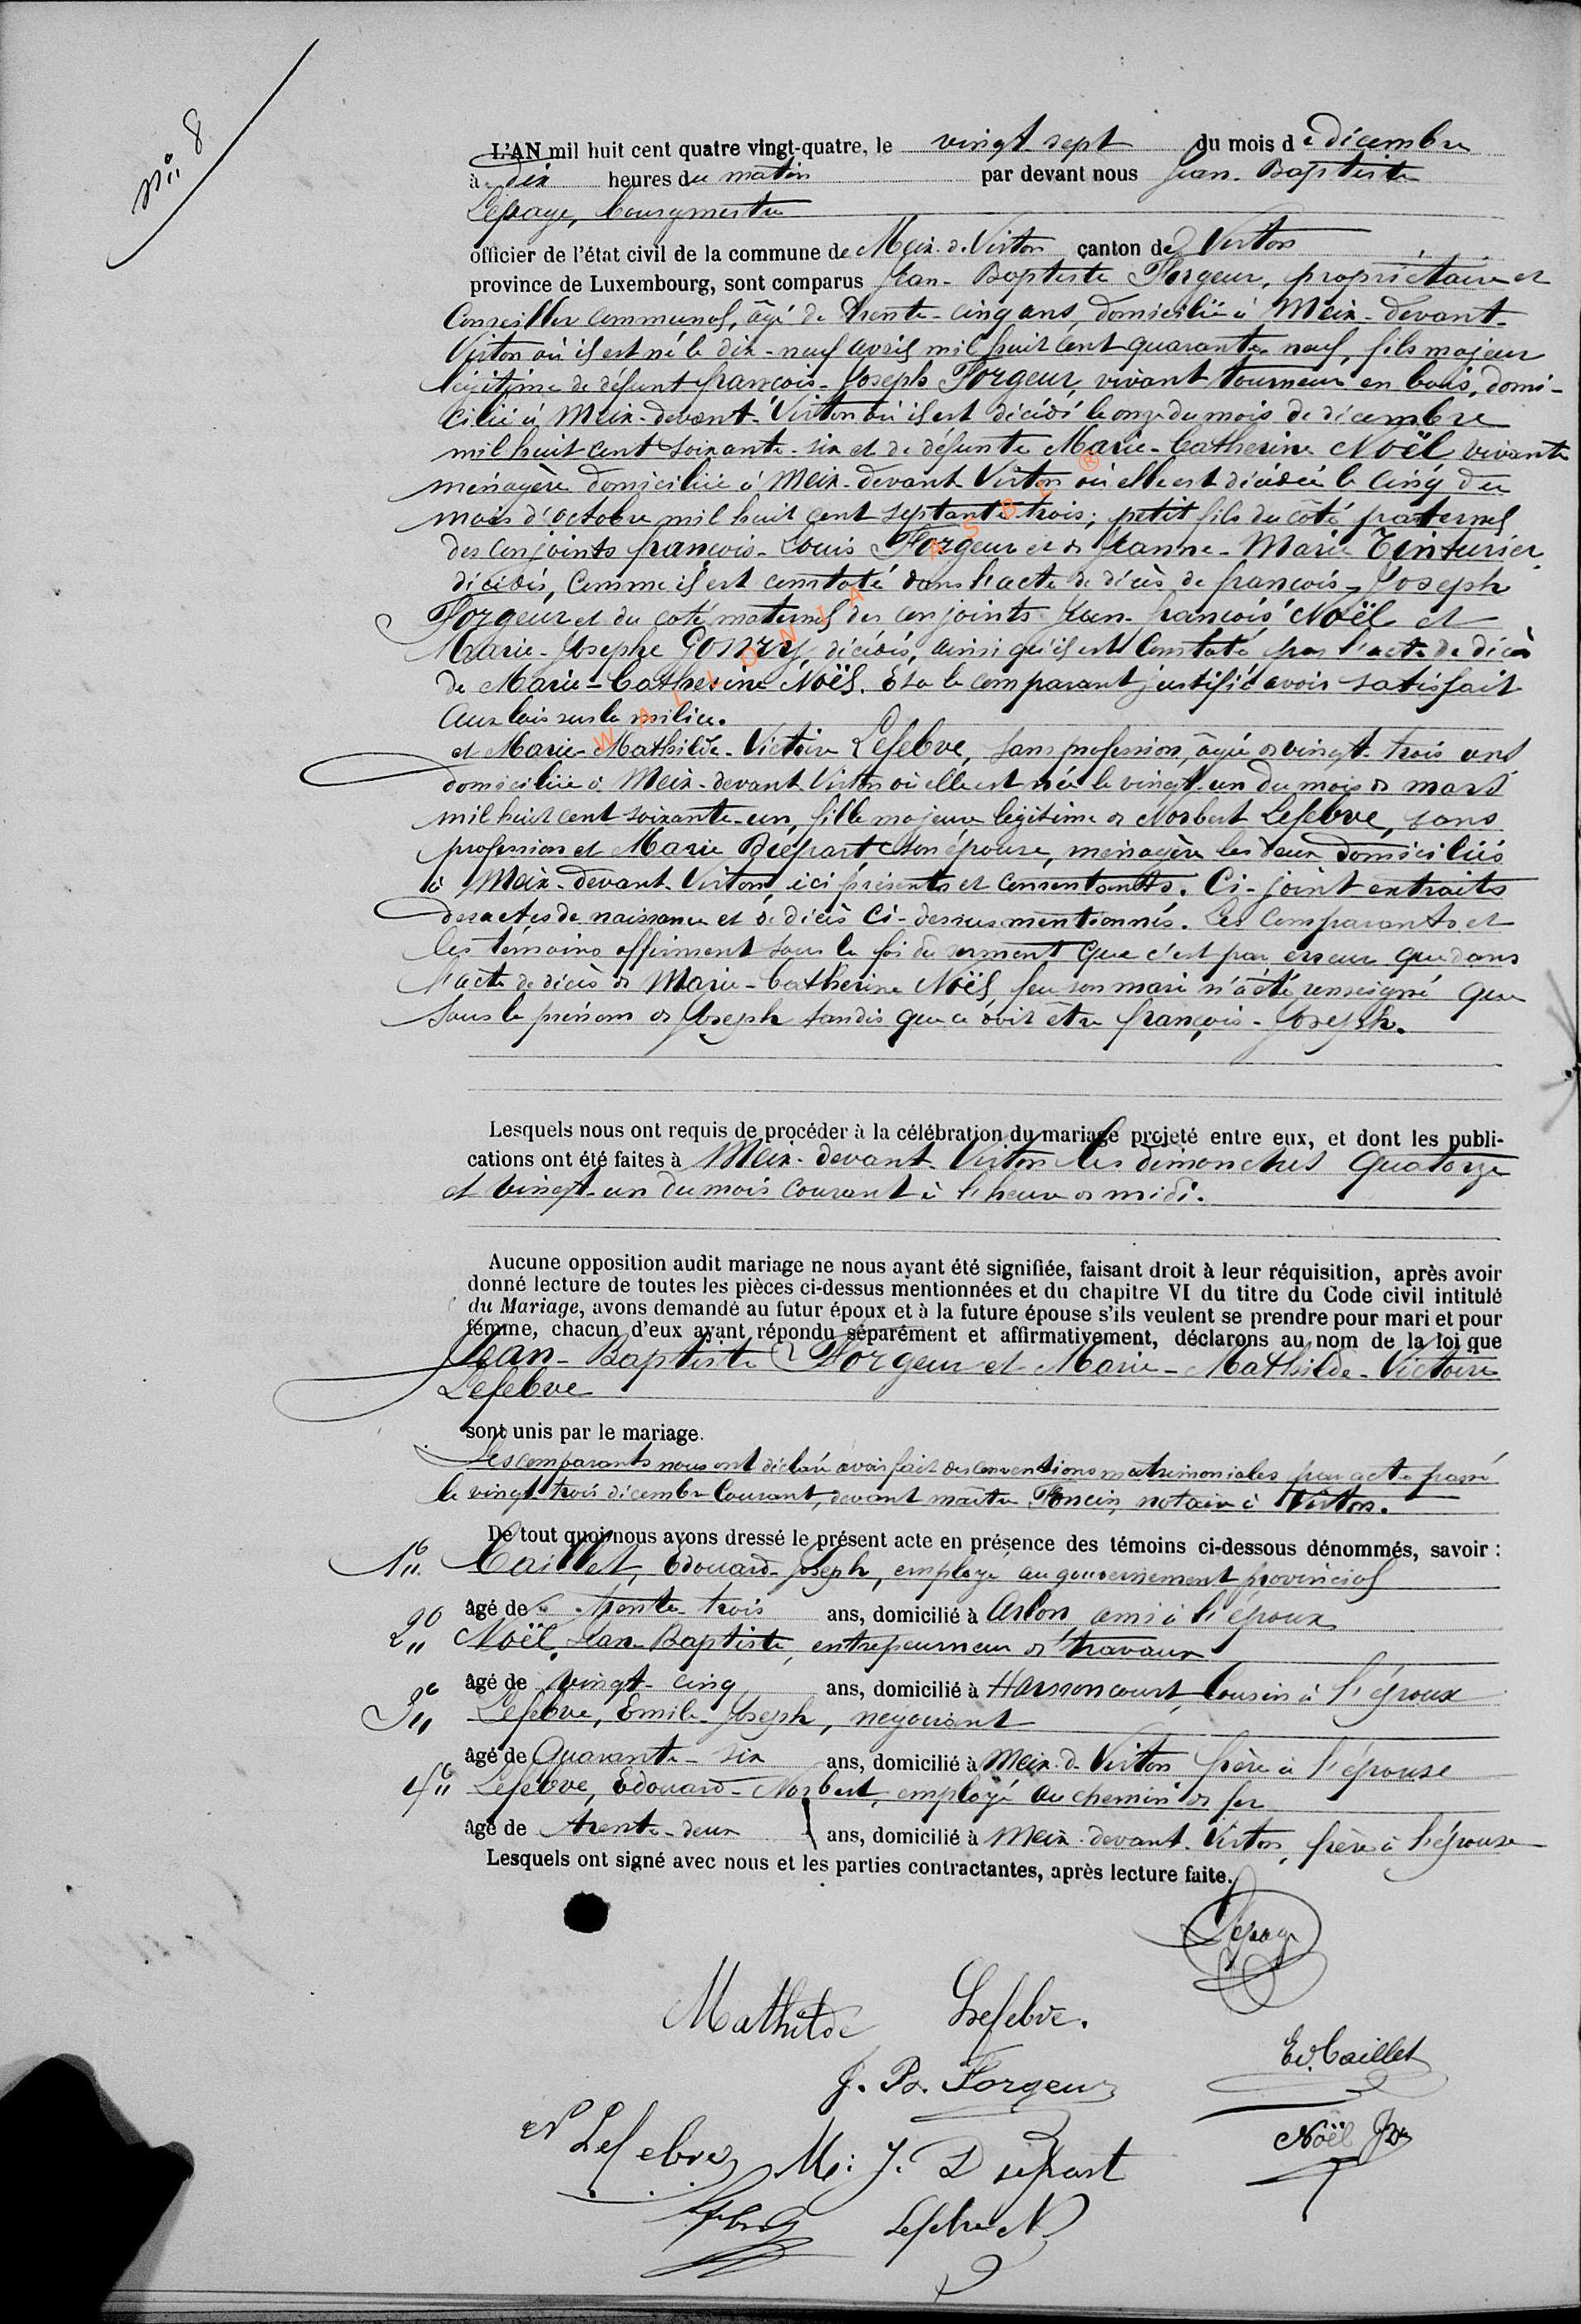 N° 8
L'AN mil huit cent quatre vingt-quatre, le vingt sept du mois de décembre
à dix heures du matin par devant nous Jean-Baptiste
Lepage, bourgmestre
officier de l'état civil de la commune de Meix-d.-Virton canton de Virton
province de Luxembourg, sont comparus Jean-Baptiste Forgeur, propriétaire et
Conseiller communal, âgé de trente-cinq ans, domicilié à Meix-devant-
Virton où il est né le dix-neuf avril mil huit cent quarante-neuf, fils majeur
légitime de défunt françois-Joseph Forgeur, vivant tourneur en bois, domi-
cilié à Meix-devant-Virton où il est décédé le onze du mois de décembre
mil huit cent soixante-six et de défunte Marie-Catherine Noël vivante
ménagère domiciliée à Meix-devant-Virton où elle est décédée le cinq du
mois d'octobre mil huit cent septante-trois; petit fils du côté paternel
des conjoints françois-Louis Forgeur et de Jeanne-Marie Tinturier,
décédés, comme il est constaté dans l'acte de décès de françois-Joseph
Forgeur et du coté maternel des conjoints Jean-françois Noël et
Marie-Josephe Gonry, décédés, ainsi qu'il est constaté par l'acte de décès
de Marie-Catherine Noël. Et a le comparant justifié avoir satisfait
aux lois sur la milice.
et Marie-Mathilde-Victoire Lefebve, sans profession, âgée de vingt-trois ans
domiciliée à Meix-devant-Virton où elle est née le vingt-un du mois de mars
mil huit cent soixante-un, fille majeure légitime de Norbert Lefebve, sans
profession et Marie Diépart son épouse, ménagère les deux domiciliés
à Meix-devant-Virton, ici présents et consentants. Ci-joint extraits
des actes de naissance et de décès ci-dessus mentionnés. Les comparants et
les témoins affirment sous la foi du serment que c'est par erreur que dans
l'acte de décès de Marie-Catherine Noël, feu son mari n'a été renseigné que
sous le prénom de Joseph tandis que ce doit être françois-Joseph.
Lesquels nous ont requis de procéder à la célébration du mariage projeté entre eux, et dont les publi-
cations ont été faites à Meix-devant-Virton les dimanches quatorze
et vingt-un du mois courant à l'heure de midi.
Aucune opposition audit mariage ne nous ayant été signifiée, faisant droit à leur réquisition, après avoir
donné lecture de toutes les pièces ci-dessus mentionnées et du chapitre VI du titre du Code civil intitulé
du Mariage, avons demandé au futur époux et à la future épouse s'ils veulent se prendre pour mari et pour
femme, chacun d'eux ayant répondu séparément et affirmativement, déclarons au nom de la loi que
Jean-Baptiste Forgeur et Marie-Mathilde-Victoire
Lefebve
sont unis par le mariage.
Les comparants nous ont déclaré avoir fait des conventions matrimoniales par acte passé
le vingt-trois décembre courant, devant maître Foncin, notaire à Virton.
De tout quoi nous avons dressé le présent acte en présence des témoins ci-dessous dénommés, savoir :
1° Caillet, Edouard-Joseph, employé au gouvernement provincial
âgé de trente-trois ans, domicilié à Arlon, ami à l'époux
2° Noël, Jean-Baptiste, entrepeurneur de travaux
âgé de vingt-cinq ans, domicilié à Harnoncourt, cousin à l'époux
3° Lefebve, Emile-Joseph, négociant
âgé de Quarante-six ans, domicilié à Meix-d-Virton frère à l'épouse
4° Lefebve, Edouard-Norbert, employé au chemin de fer
âgé de trente-deux ans, domicilié à Meix-devant-Virton, frère à l'épouse
Lesquels ont signé avec nous et les parties contractantes, après lecture faite.
Lepage
Mathilde Lefebve.
Ed. Caillet
J. B. Forgeur
Noël JB
N Lefebve M. J. Diépart
Lefebve N
WALLONIA ASBL ®